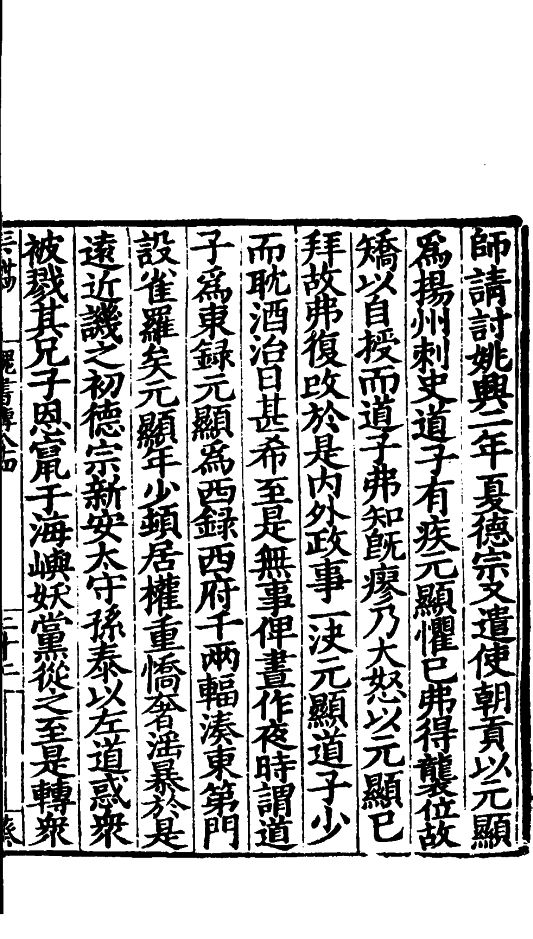 師請討姚興二年夏德宗又遣使朝貢以元顯
爲揚州刺史道子有疾元顯懼已弗得襲位故
矯以自授而道子弗知旣瘳乃大怒以元顯已
拜故弗復改於是内外政事一决元顯道子少
而耽酒治日甚希至是無事俾晝作夜時謂道
子爲東録元顯爲西録西府千兩輻湊東第門
設雀羅矣元顯年少頓居權重憍奢淫暴於是
遠近譏之初德宗新安太守孫泰以左道惑衆
被戮其兄子恩竄于海嶼妖黨從之至是轉衆